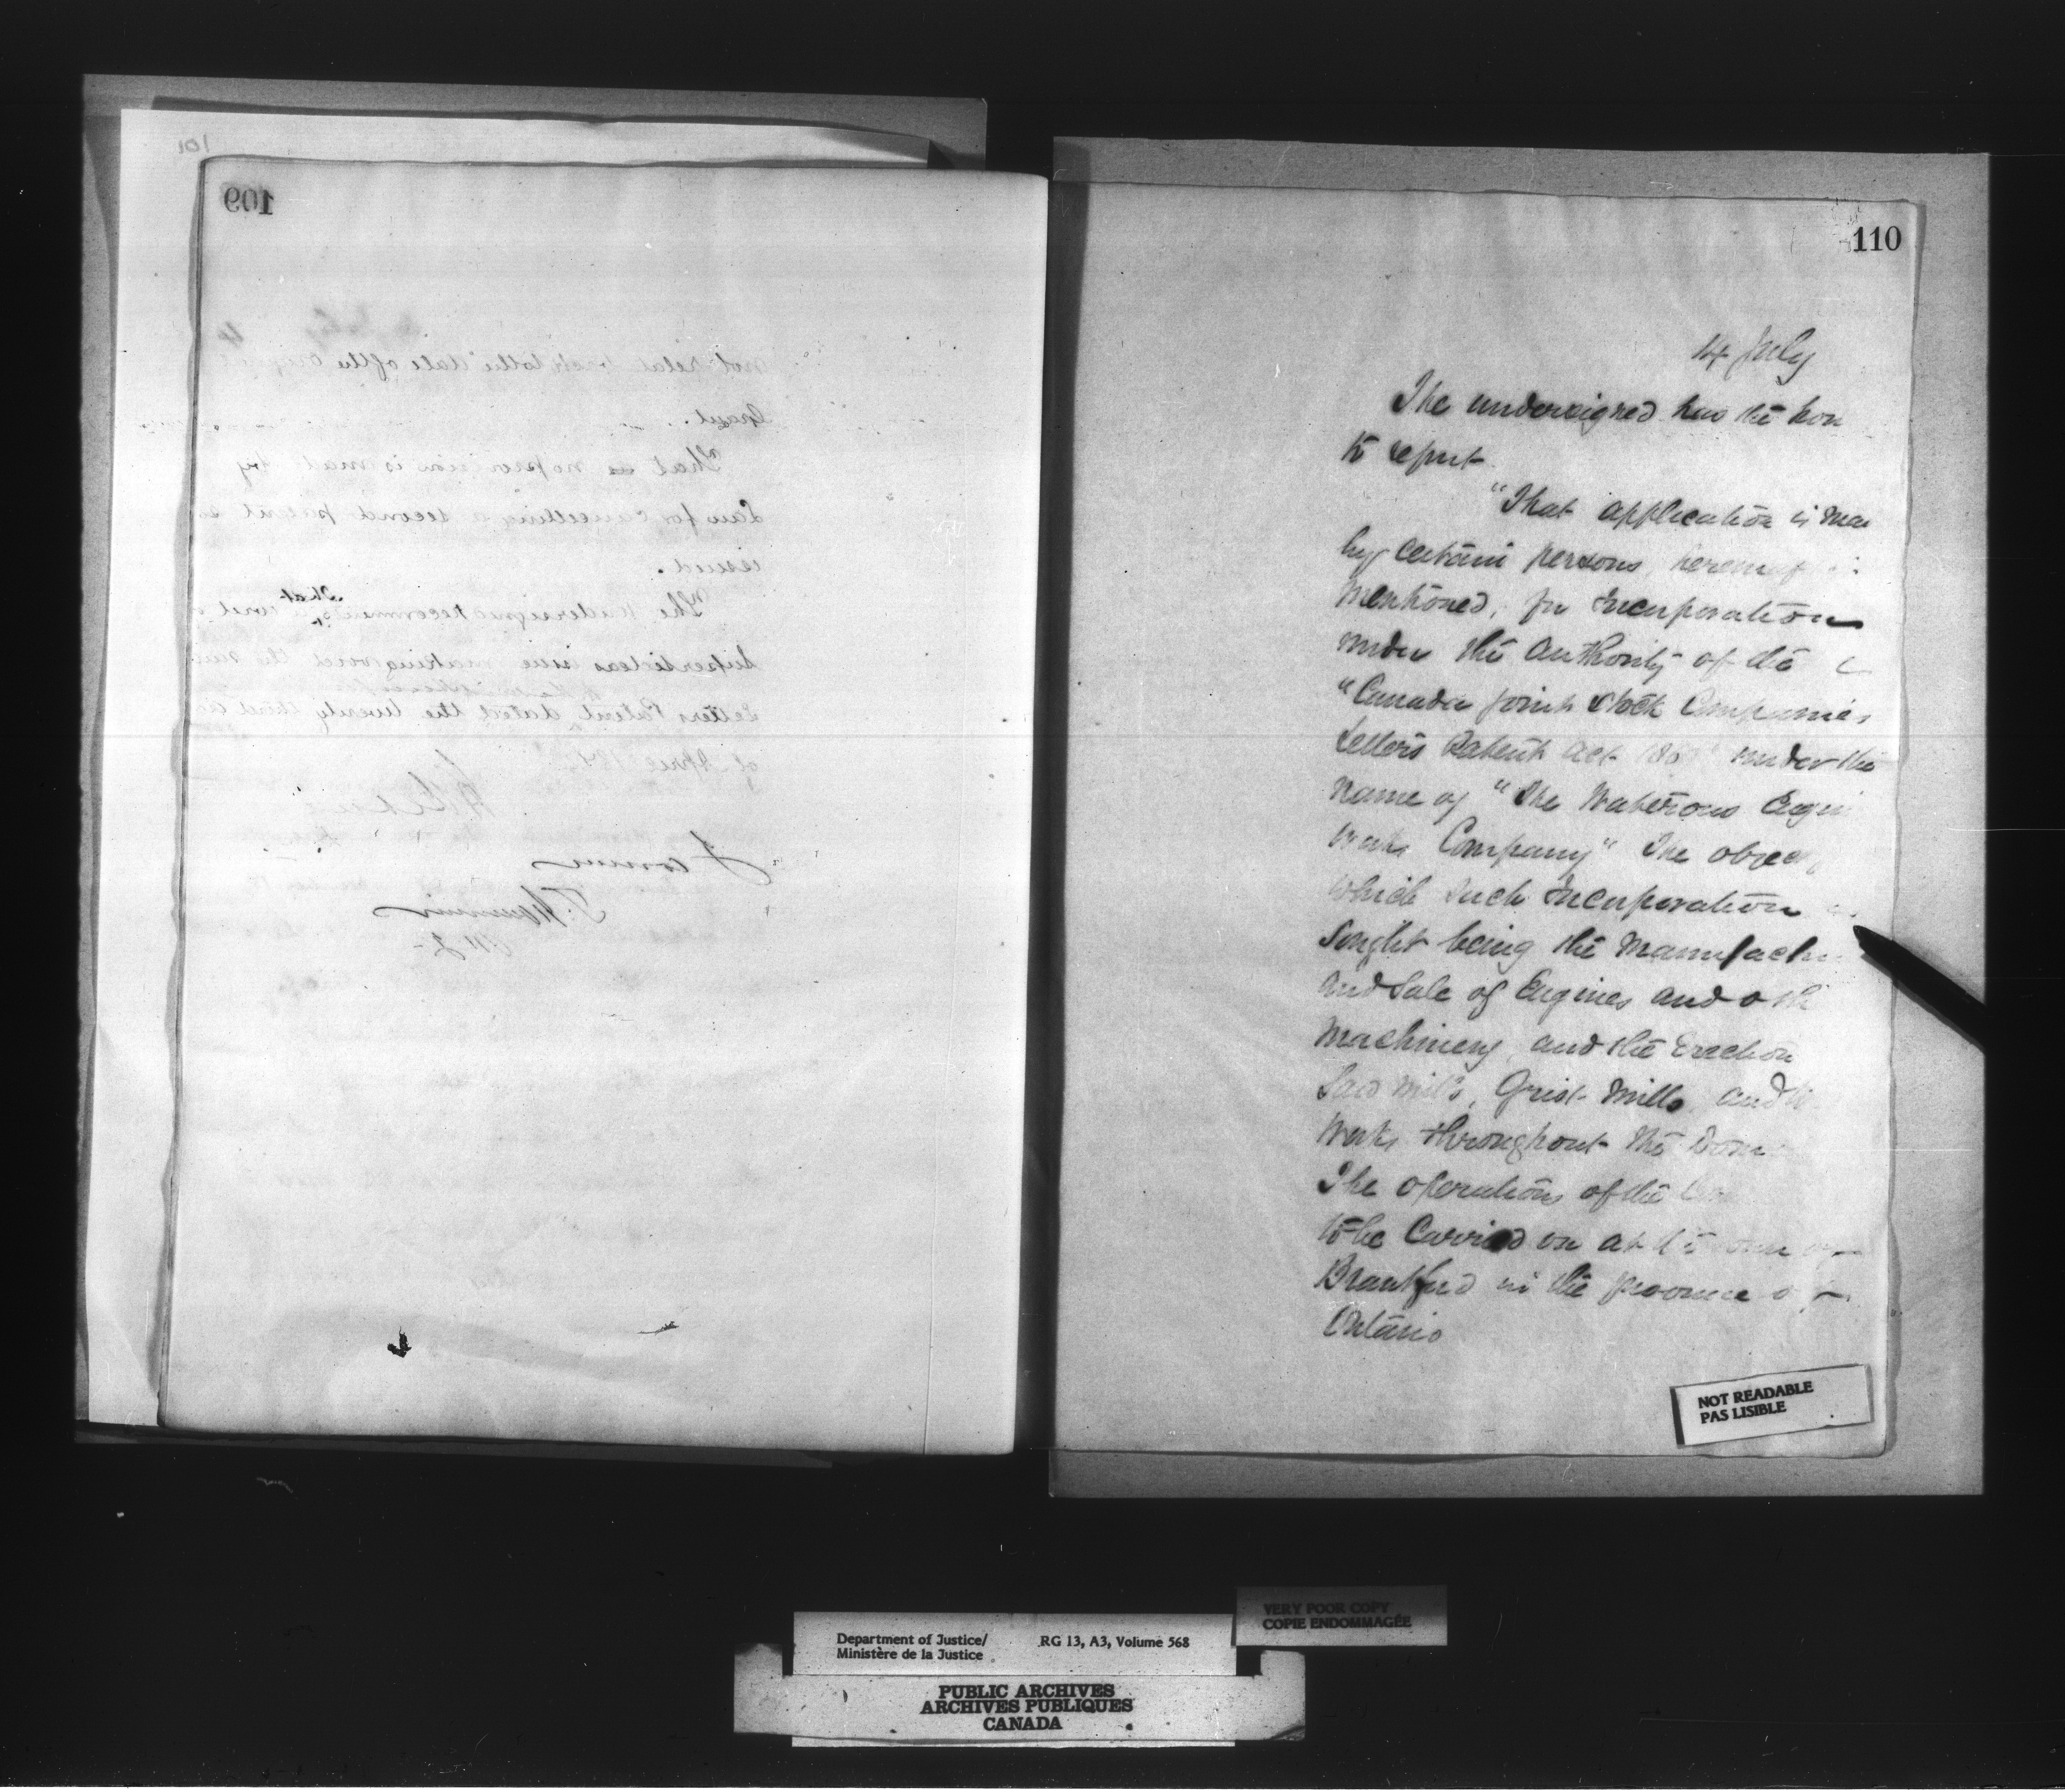 101
109
not relate back to the date of the
Grant.
That as no provision is made by
Law for cancelling a second patent
issued.
The Undersigned recommends that
Supersedeas issue making void the said
Letters Patent dated the twenty third
of April
110
14 July
The undersigned has the hon
to report
"That application is ma
by certain persons, herein
mentioned, for incorporation
under the authority of the
"Canada joint stock Companies
Letters Patent Act under the
name of "The Waterous Engi
Works Company" The objec
which such incorporation
sought being the manufactu
and sale of Engines and oth
Machinery, and the Erection
Saw mills, Grist Mills, and
Works throughout the Dom
The operations of the
to be carried on at
Brantford in the province of
Ontario
NOT READABLE
PAS LISIBLE
VERY POOR COPY
COPIE ENDOMMAGÉE
Department of Justice/ RG 13, A3, Volume 568
Ministère de la Justice
PUBLIC ARCHIVES
ARCHIVES PUBLIQUES
CANADA